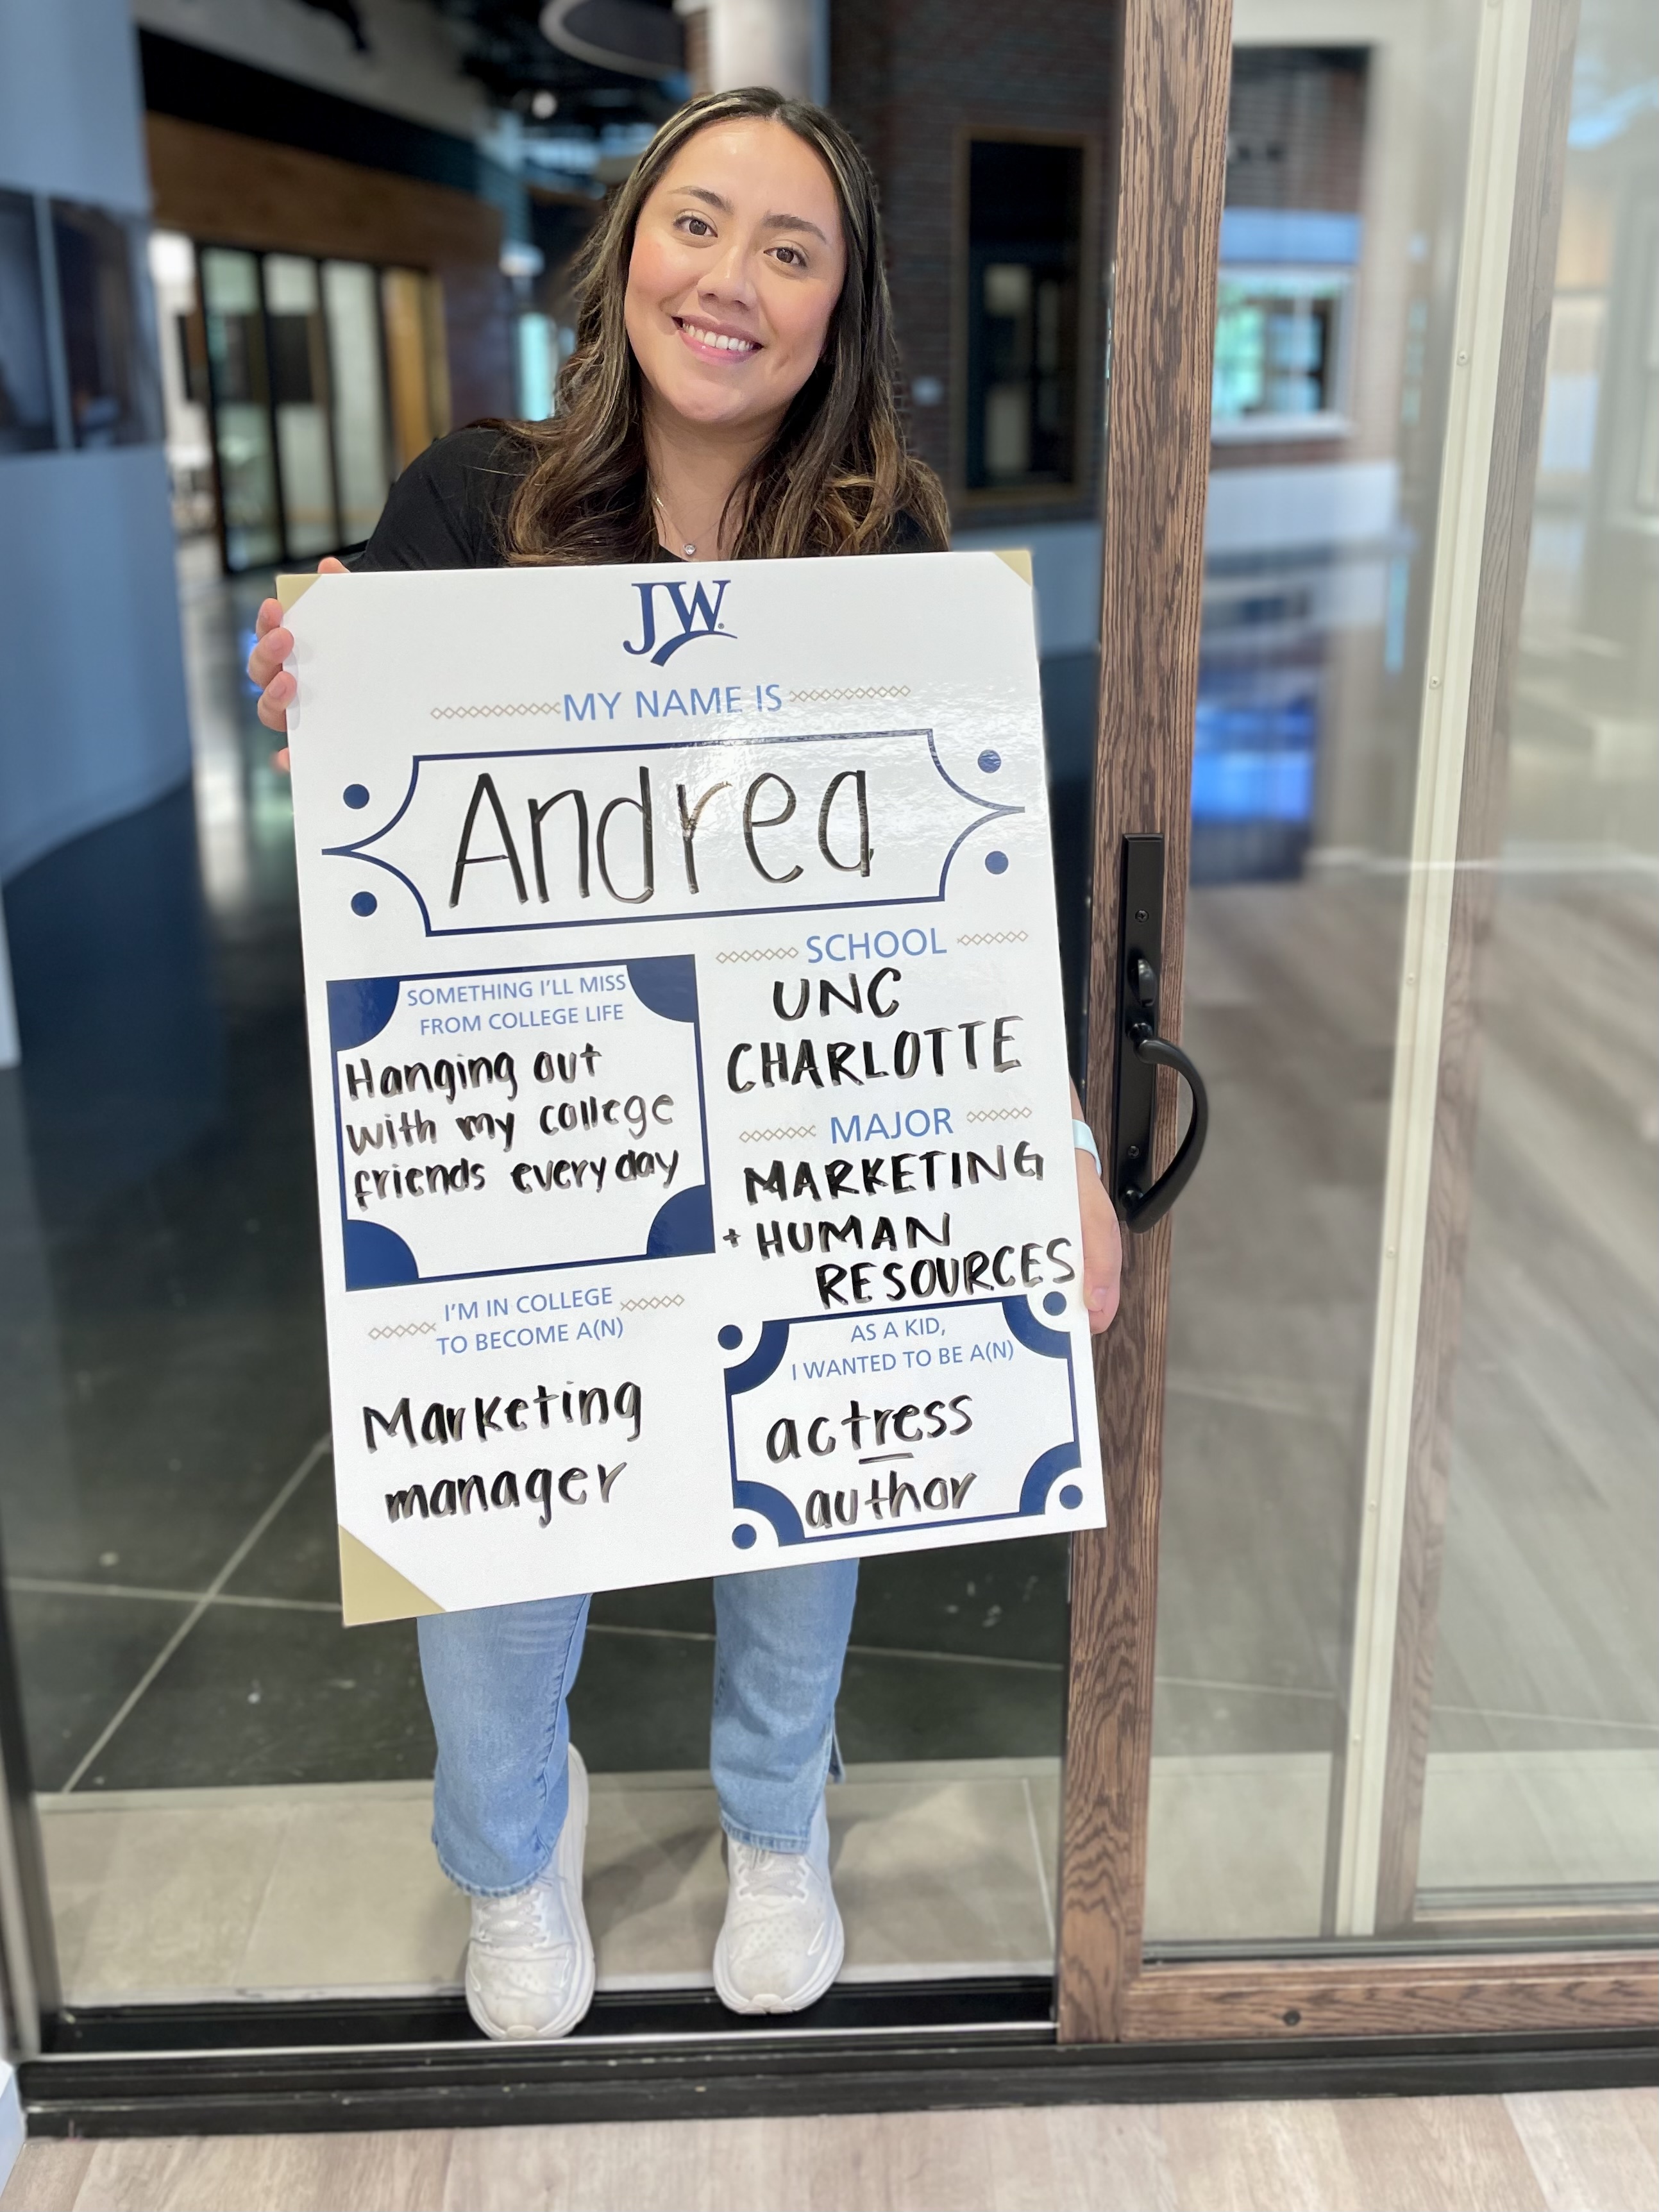 JW
MY NAME IS
Andrea
SOMETHING I'LL MISS
FROM COLLEGE LIFE
Hanging out
with my college
friends every day
SCHOOL
UNC
CHARLOTTE
MAJOR
MARKETING
+ HUMAN
RESOURCES
I'M IN COLLEGE
TO BECOME A(N)
Marketing
manager
AS A KID,
I WANTED TO BE A(N)
actress
author